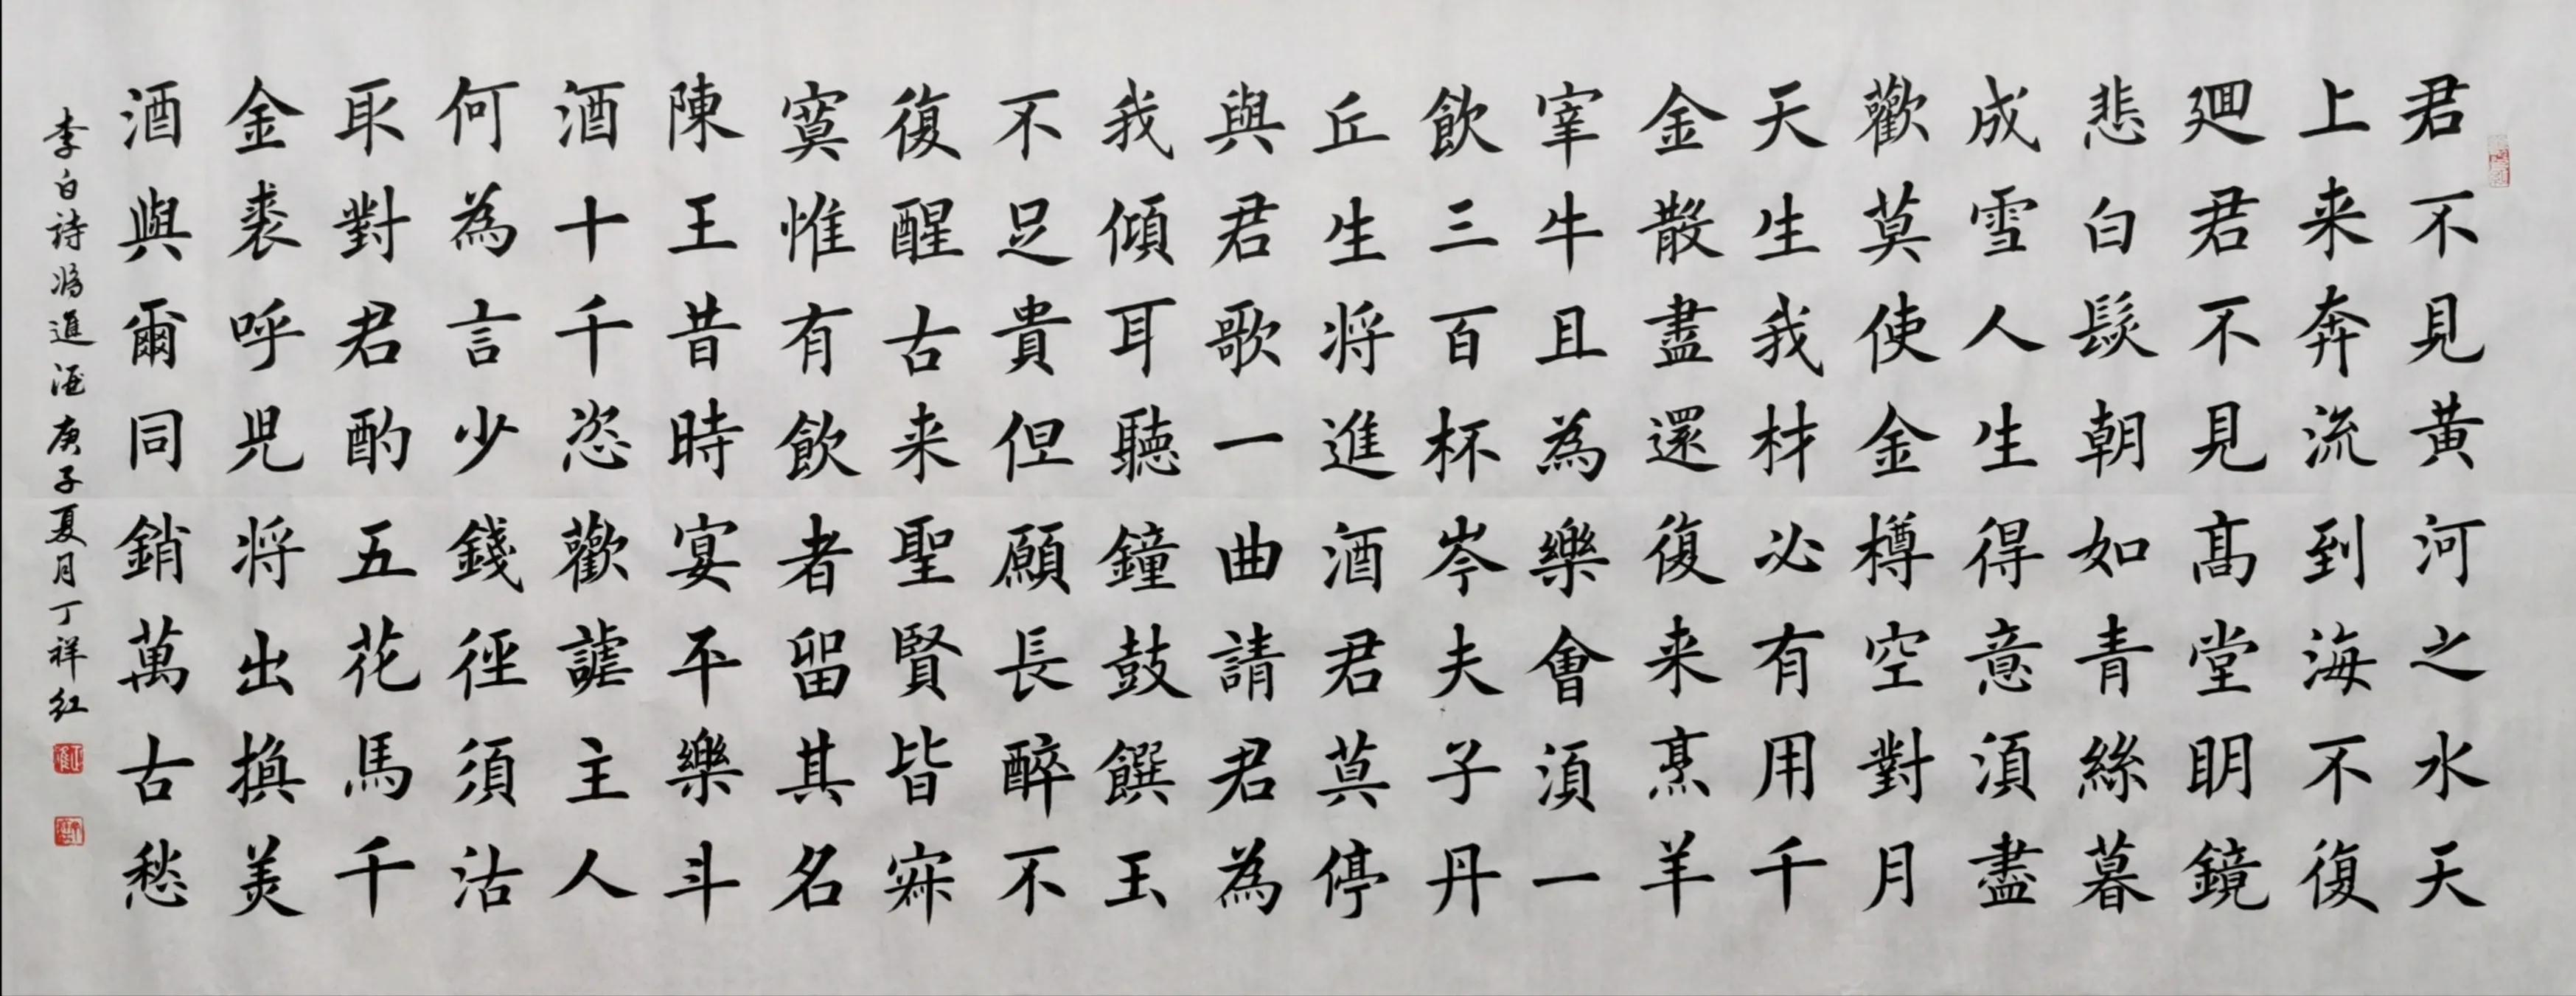 君不見黃河之水天
上来奔流到海不復
迴君不見髙堂明鏡
悲白髮朝如青絲暮
成雪人生得意湏盡
歡莫使金樽空對月
天生我材必有用千
金散盡還復来烹羊
宰牛且為樂會湏一
飲三百杯岑夫子丹
丘生将進酒君莫停
與君歌一曲請君為
我傾耳聽鐘鼓饌玉
不足貴但願長醉不
復醒古来聖賢皆寂
寞惟有飲者留其名
陳王昔時宴平樂斗
酒十千恣歡謔主人
何為言少錢徑須沽
取對君酌五花馬千
金裘呼兒将出換美
酒與爾同銷萬古愁
李白詩将進酒庚子夏月丁祥红